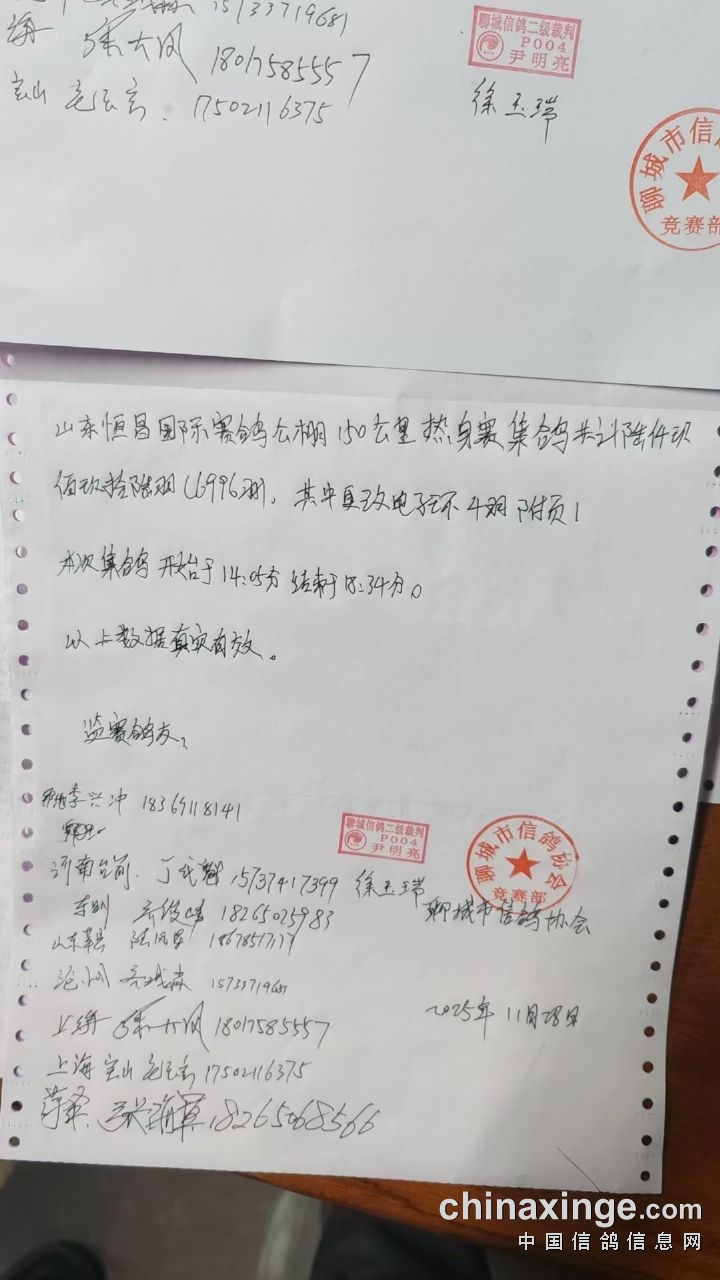 15733719681
18017585557
宝山 17502116375
聊城信鸽二级裁判
P004
尹明亮
徐玉瑞
聊城市信鸽
竞赛部
山东恒昌国际赛鸽公棚150公里热身赛集鸽共计陆仟玖
佰玖拾陆羽(6996羽),其中更改电子环4羽附页1
本次集鸽开始于14:05分结束于18:34分。
以上数据真实有效。
监赛鸽友:
李兴冲 18369118141
聊城信鸽二级裁判
P004
尹明亮
聊城市信鸽协会
竞赛部
河南台前 15737417399 徐玉瑞
18265025983 聊城市信鸽协会
山东莘县
沧州 15733719681
2025年11月28日
上海 18017585557
上海宝山 17502116375
18265068566
chinaxinge.com
中国信鸽信息网